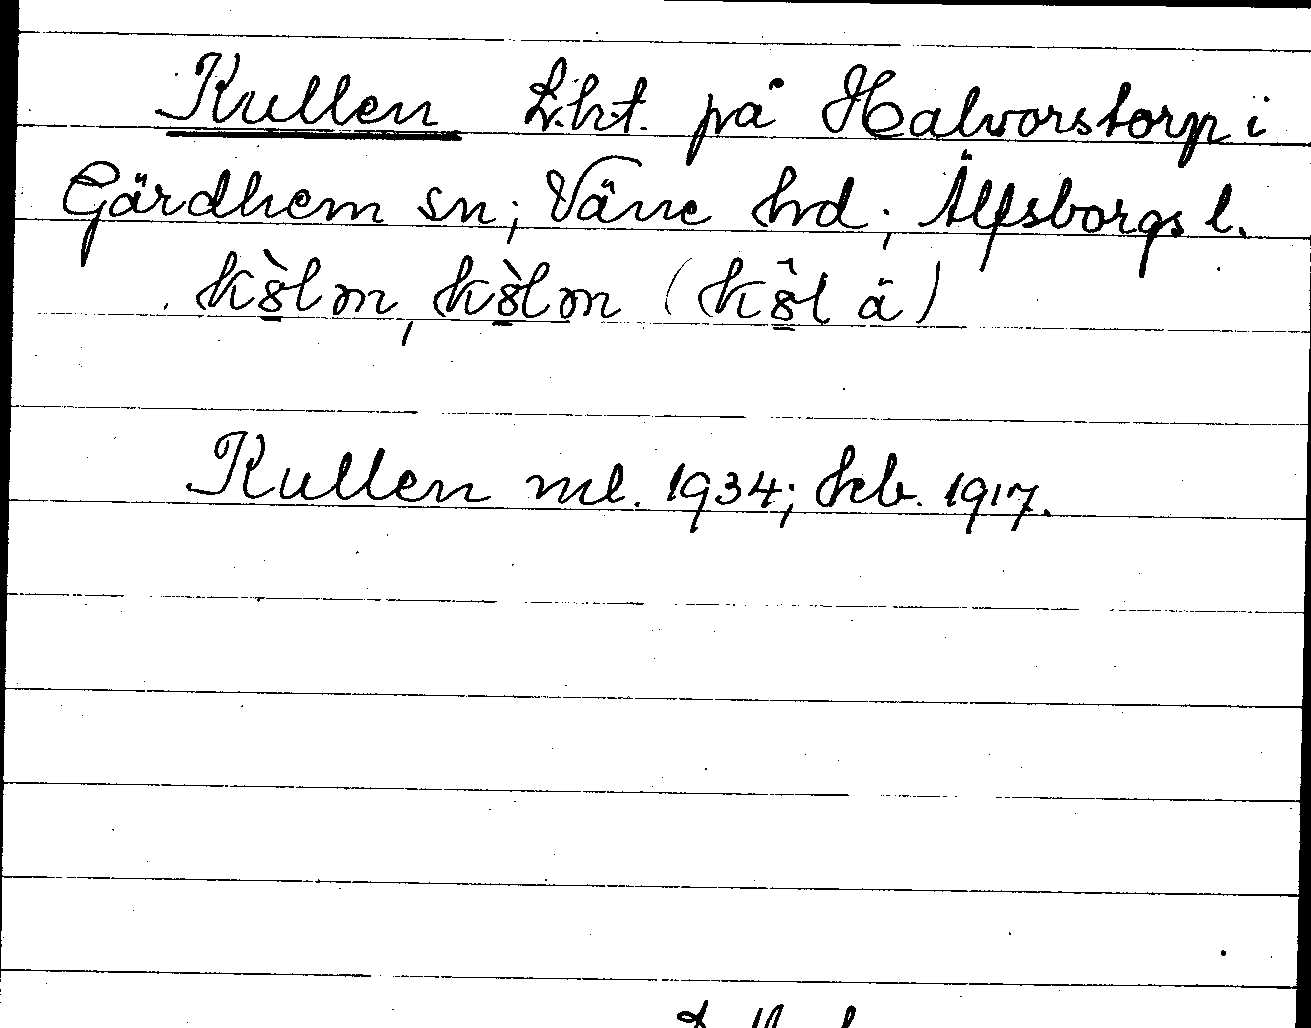 Kullen Lht. på Halvorstorp i
Gärdhem sn; Väne hd; Älfsborgs l.
kòlm, kòlm (kôl ä)
Kullen ml. 1934; hcb. 1917.